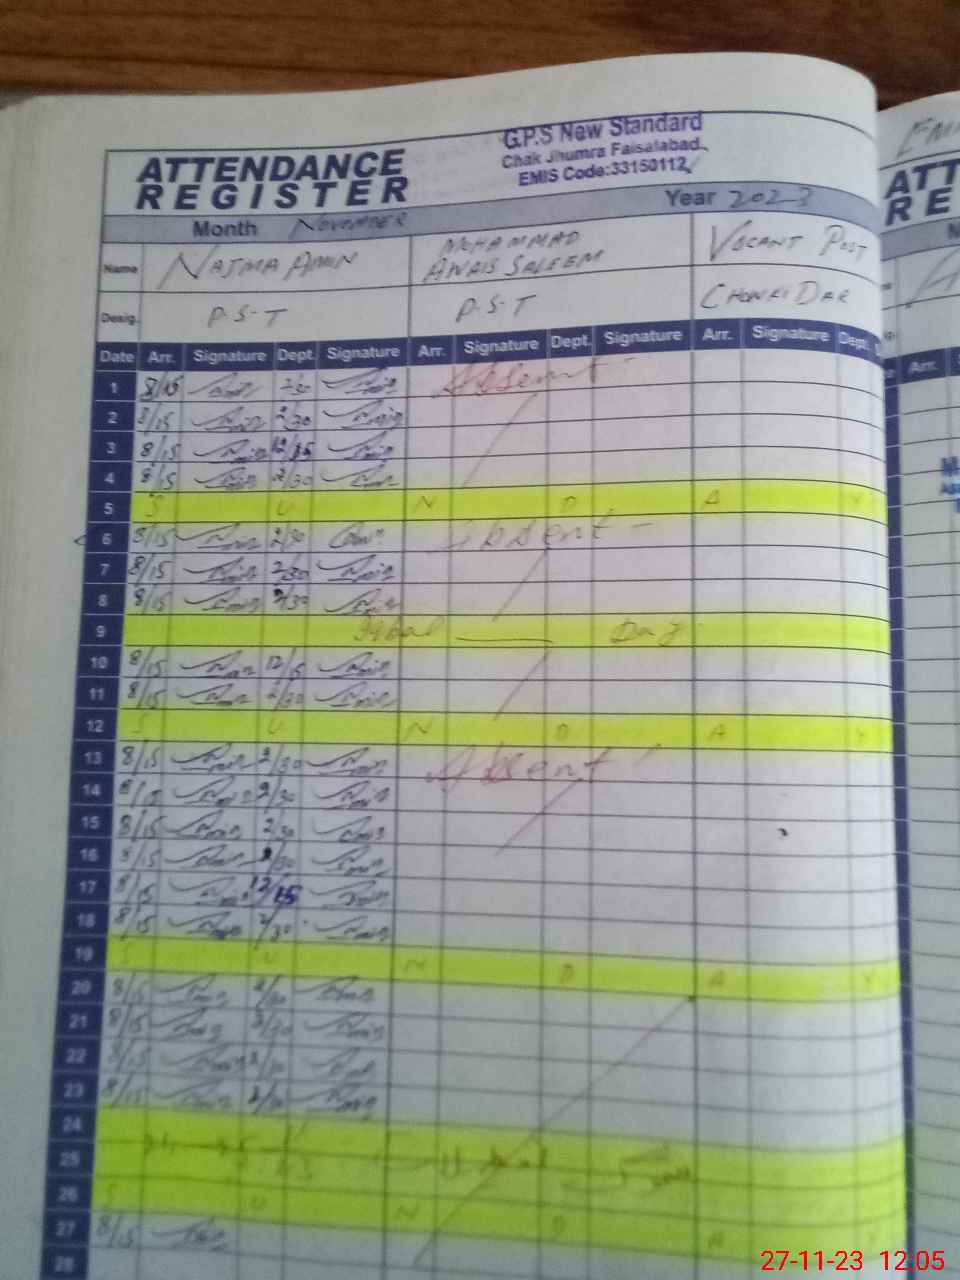 G.P.S New Standard
Chak Jhumra Faisalabad.
EMIS Code:33150112
ATTENDANCE
REGISTER
Month NOVEMBER Year 2023
Name NAJMA AMIN MOHAMMAD AWAIS SALEEM VOCANT POST
Desig. P.S-T P.S-T CHOWKI DAR
Date Arr. Signature Dept. Signature Arr. Signature Dept. Signature Arr. Signature Dept.
1 8/15 2/30 Absent
2 8/15 2/30
3 8/15 12/15
4 8/15 2/30
5 S U N D A Y
6 8/15 2/30 Absent
7 8/15 2/30
8 8/15 2/30
9 Iqbal Day
10 8/15 12/15
11 8/15 2/30
12 S U N D A Y
13 8/15 2/30 Absent
14 8/15 2/30
15 8/15 2/30
16 8/15 2/30
17 8/15 12/15
18 8/15 2/30
19 S U N D A Y
20 8/15 2/30
21 8/15 2/30
22 8/15 2/30
23 8/15 2/30
24
25
26 S U N D A Y
27 8/15
28
ATT
RE
Arr.
27-11-23 12:05